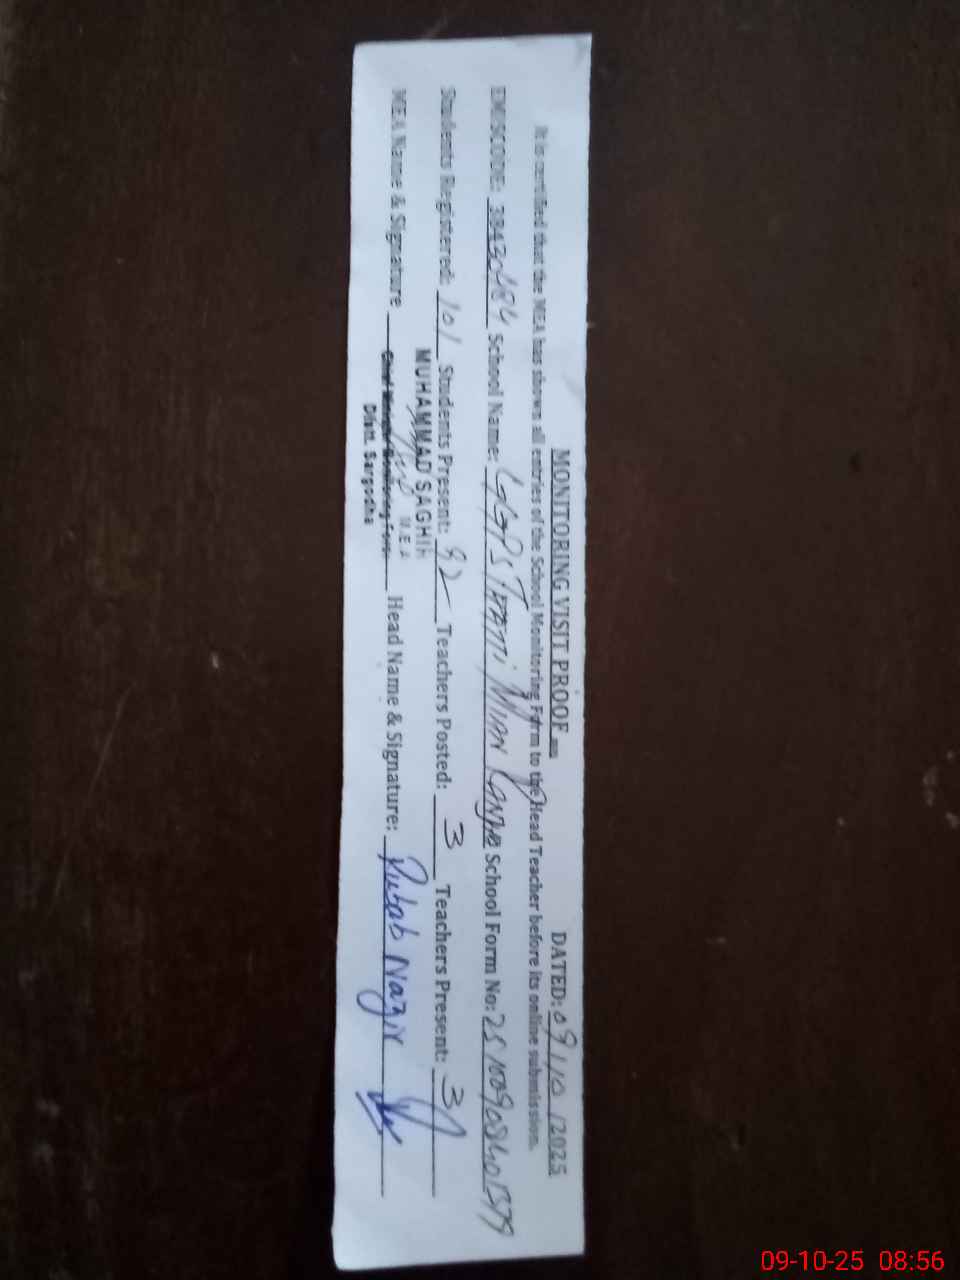 MONITORING VISIT PROOF DATED: 09/10/2025
It is certified that the MEA has shown all entries of the School Monitoring Form to the Head Teacher before its online submission.
EMISCODE: 38430484 School Name: GGPS THATTI MIAN RANJHA School Form No:
Students Registered: 101 Students Present: 92 Teachers Posted: 3 Teachers Present: 3
MUHAMMAD SAGHIR
M.E.A
MEA Name & Signature Chief Minister Monitoring Force Head Name & Signature: Rubab Nazir
Distt. Sargodha
09-10-25 08:56